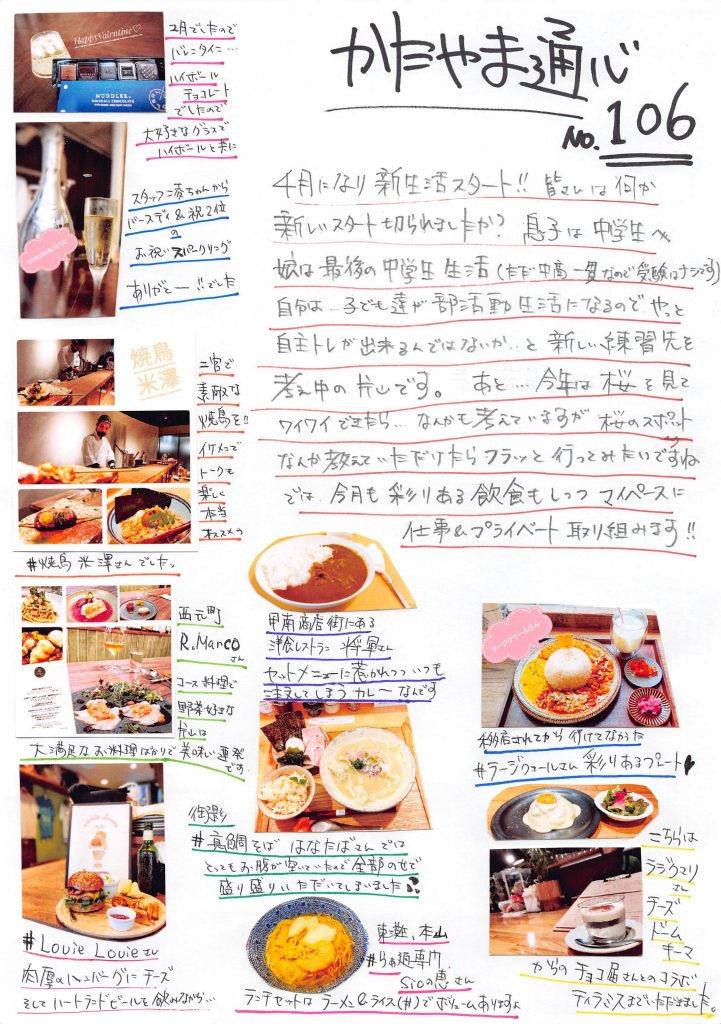 かたやま通心
No.106
4月になり 新生活スタート!! 皆さんは何か
新しいスタート切られましたか? 息子は中学生へ
娘は最後の中学生生活(ただ中高一貫なので受験はナシです)
自分は…子ども達が部活動生活になるので、やっと
自主トレが出来るんではないか…と新しい練習先を
考え中の片山です。 あと…今年は桜を見て
ワイワイできたら…なんかも考えていますが 桜のスポット
なんか教えていただけたらフラッと行ってみたいですね
では、今月も彩りある飲食もしつつ マイペースに
仕事&プライベート取り組みます!!
HappyValentine♡
MUDDLER.
HIGHBALL CHOCOLATE
2月でしたので
バレンタインに…
ハイボール
チョコレート
でしたので
大好きなグラスで
ハイボールと共に
スタッフ二葵ちゃんから
バースデイ&祝2位
の
お祝いスパークリング
ありがとー!!でした
焼鳥
米澤
三宮で
素敵な
焼鳥を!!
イケメンで
トークも
楽しく
本当
オススメの
#焼鳥米澤さんでした。
西元町
R.Marco
さん
コース料理で
野菜好きな
片山は
大満足なお料理ばかりで美味しい連発
です。
#Louie Louieさん
肉厚のハンバーグにチーズ
そしてハートランドビールを飲みながら…
甲南商店街にある
洋食レストラン 将軍さん
セットメニューに惹かれつついつも
注文してしまう カレーなんです
御影
#真鯛そば はなたばさんでは
とってもお腹が空いていたので全部のせで
盛り盛りいただいてしまいました
東灘、本山
#らぁ麺専門
Sioの恵さん
ランチセットは ラーメン&ライス(#)でボリュームありますよ
ラージクマールさん
移店されてから行けてなかった
#ラージクマールさん 彩りあるプレート♥
こちらは
ラジクマリ
さん
チーズ
ドーム
キーマ
からのチョコ屋さんとのコラボ
ティラミスまでいただきました。